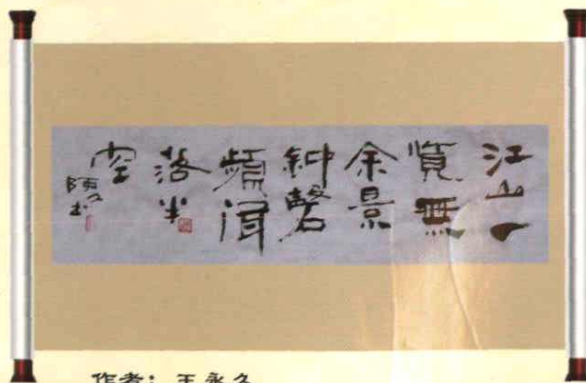 江山一
覽無
余景
钟磬
頻聞
落半
空
作者：王永久